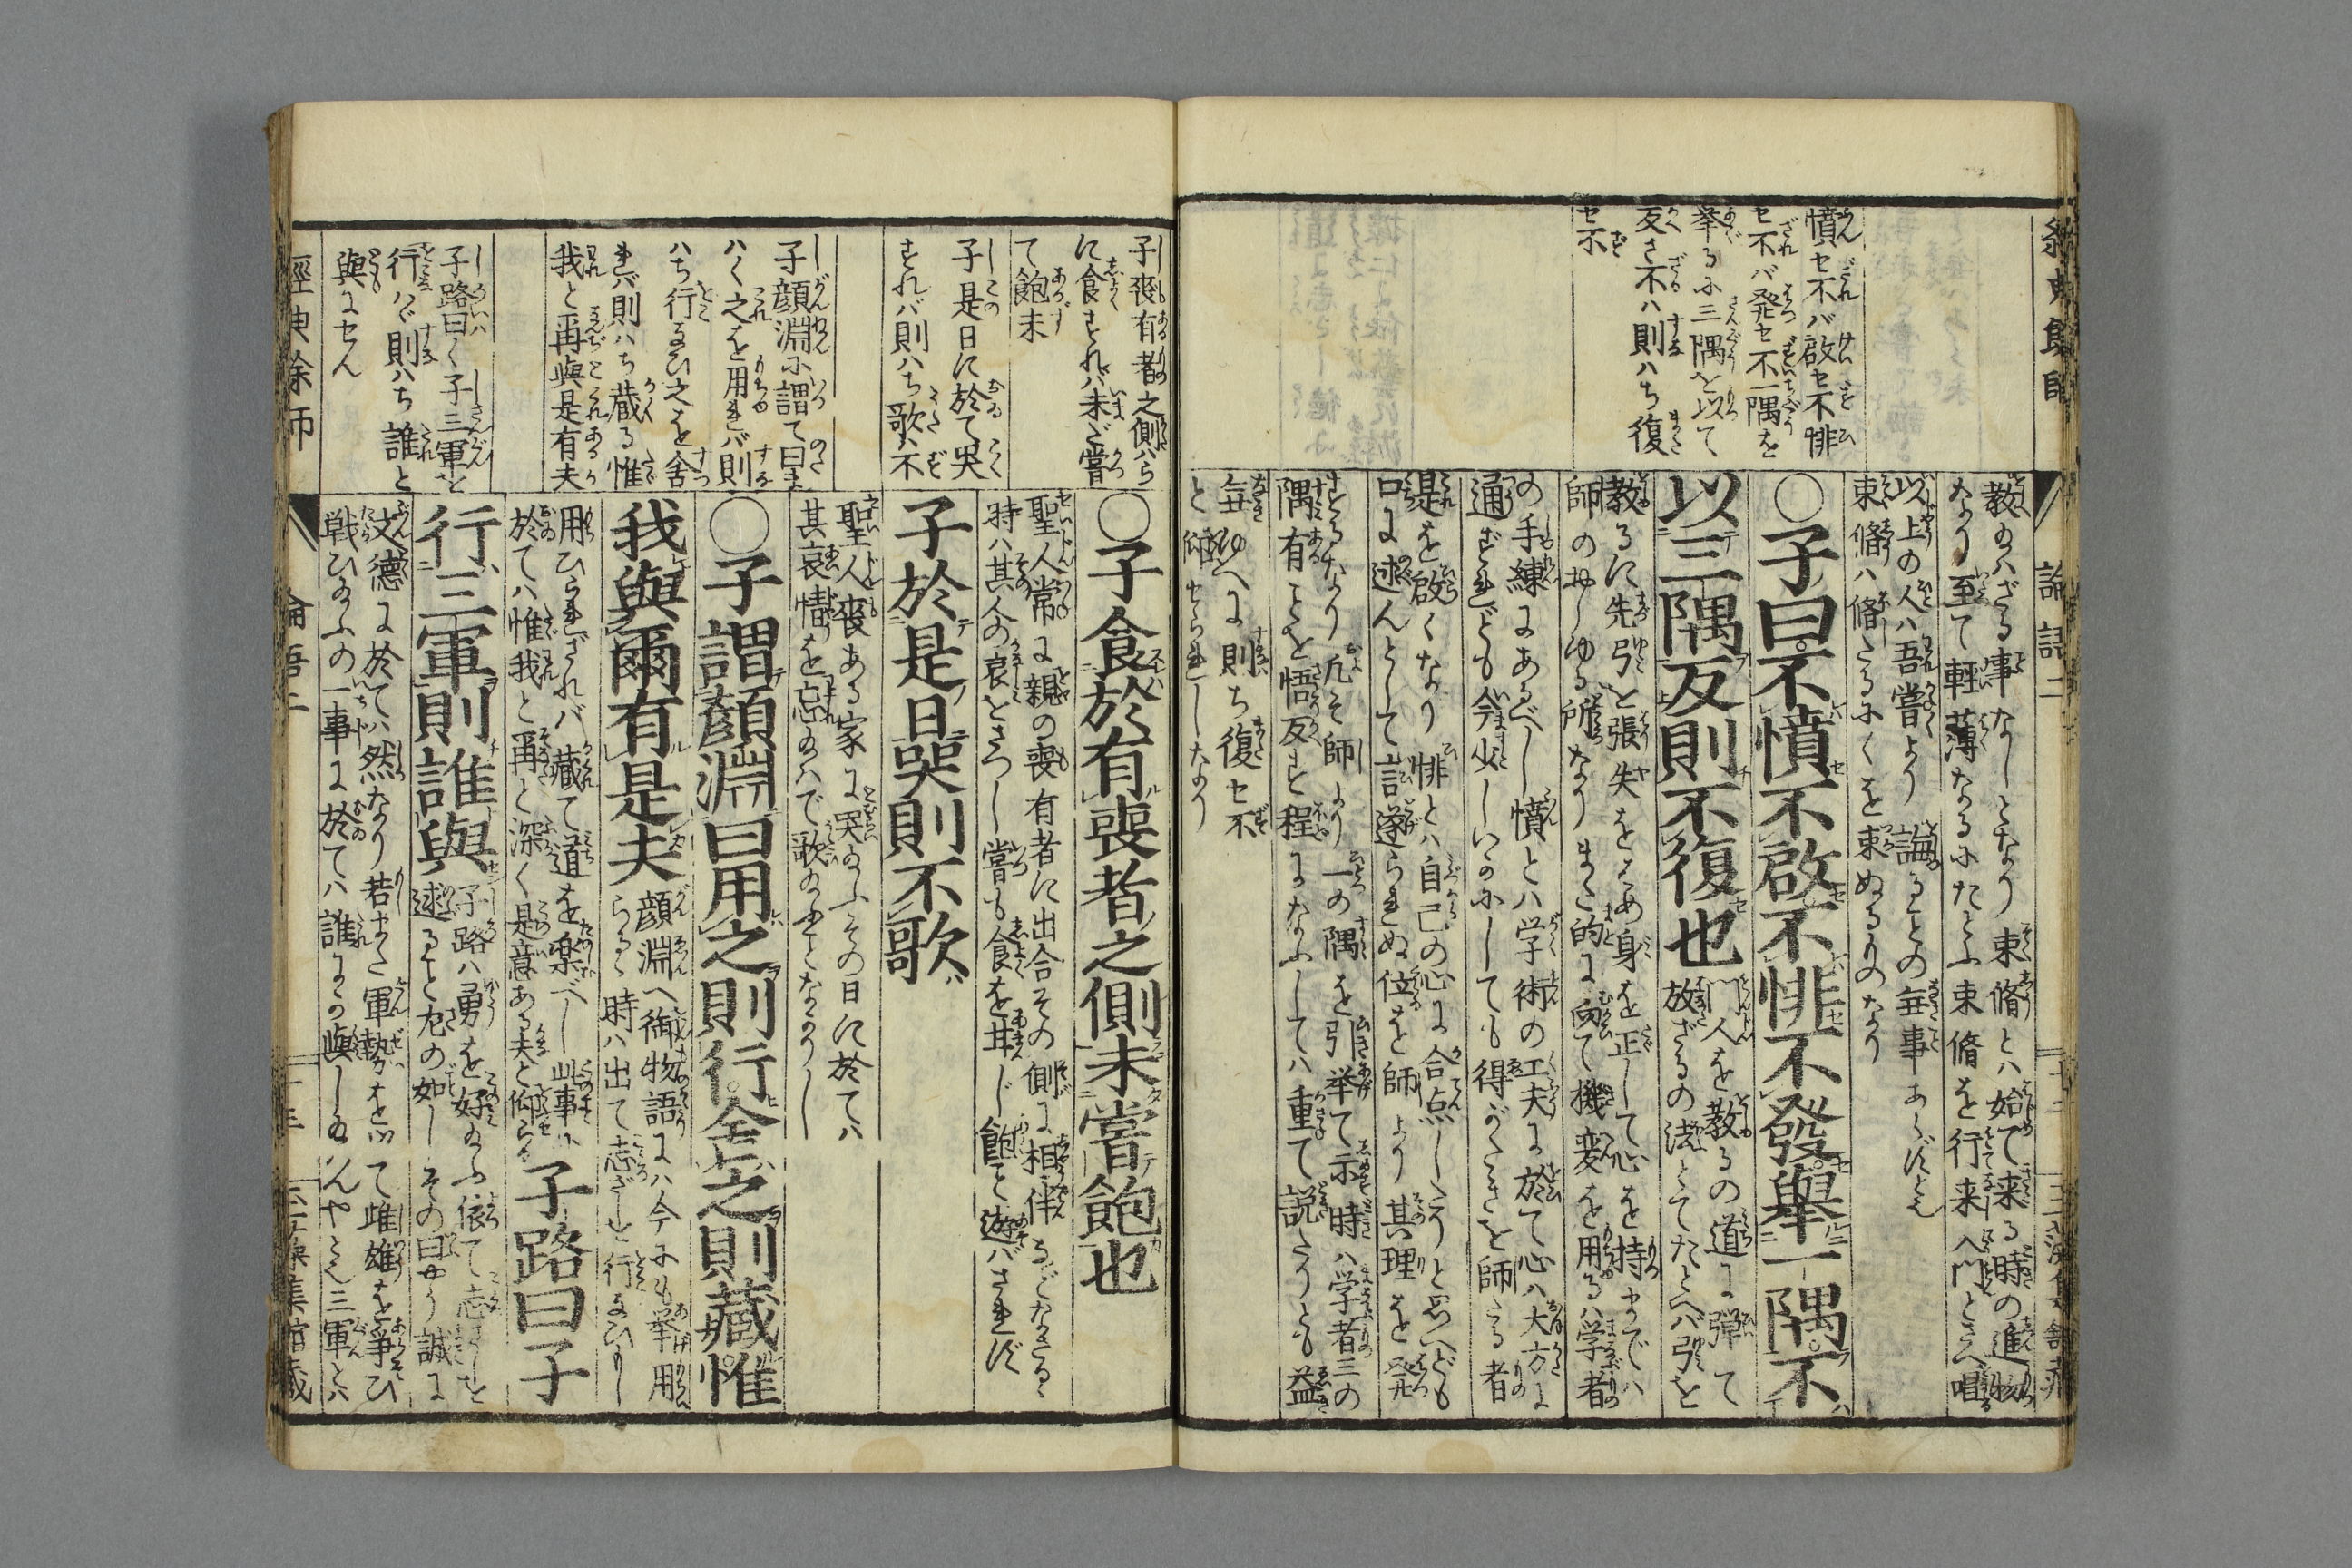 論語二
憤セ不バ啟セ不悱
セ不バ発セ不一隅を
挙るに三隅を以て
反さ不ハ則ハち復
セ不
以上の人ハ吾嘗より誨ることの無事あらずとも
束脩ハ脩たるにくを束ぬるものなり
〇子曰不憤不啟不悱不發舉一隅不
以三隅反則不復也
門人を教るの道に弾て
放ざるの法とてたとへバ弓を
教るに先弓を張失をはめ身を正して心を持までハ
師のおしゆる所なりまた的に向て機変を用るハ学者
の手練にあるべし憤とハ学術の工夫に於て心ハ大方に
通ずれども今少しいかにしても得がたきを師たる者
是を啟くなり悱とハ自己の心に合点したりと思へども
口に述んとして言遂られぬ位を師より其理を発
するなり凡そ師より一の隅を引挙て示時ハ学者三の
隅有ことを悟反す程になふしてハ重て説たりとも益
無ゆへに則ち復セ不
と仰せられしなり
子喪有者之側ハら
に食すれバ未ダ嘗
て飽未
子是日に於て哭
すれバ則ハち歌ハ不
子顔淵に謂て曰ま
ハく之を用れバ則
ハち行なひ之を舍
れバ則ハち蔵る惟
我と爾與是有夫
子路曰く子三軍を
行ハヾ則ハち誰と
與にセん
〇子食於有喪者之側未嘗飽也
聖人常に親の喪有者に出合その側に相伴などなさるゝ
時ハ其人の哀をさつし嘗も食を甘じ飽と遊バされず
子於是日哭則不歌
聖人喪ある家に哭給ふその日に於てハ
其哀情を忘給ハで歌給ことなかりし
〇子謂顏淵曰用之則行舍之則藏惟
我與爾有是夫
顔淵へ御物語にハ今にも挙用
らるゝ時ハ出て志ざしを行なひもし
用ひられざれバ蔵て道を楽べし此事に
於てハ惟我と爾と深く是意ある夫と仰らる
子路曰子
行三軍則誰與
子路ハ勇を好給ふ依て志ざしを
述ること左の如しその曰やう誠に
文徳に於てハ然なり若また軍勢を以て雌雄を争ひ
戦ひ給ふの一事に於てハ誰にか與し給んやと三軍とハ
經典余師
論語二